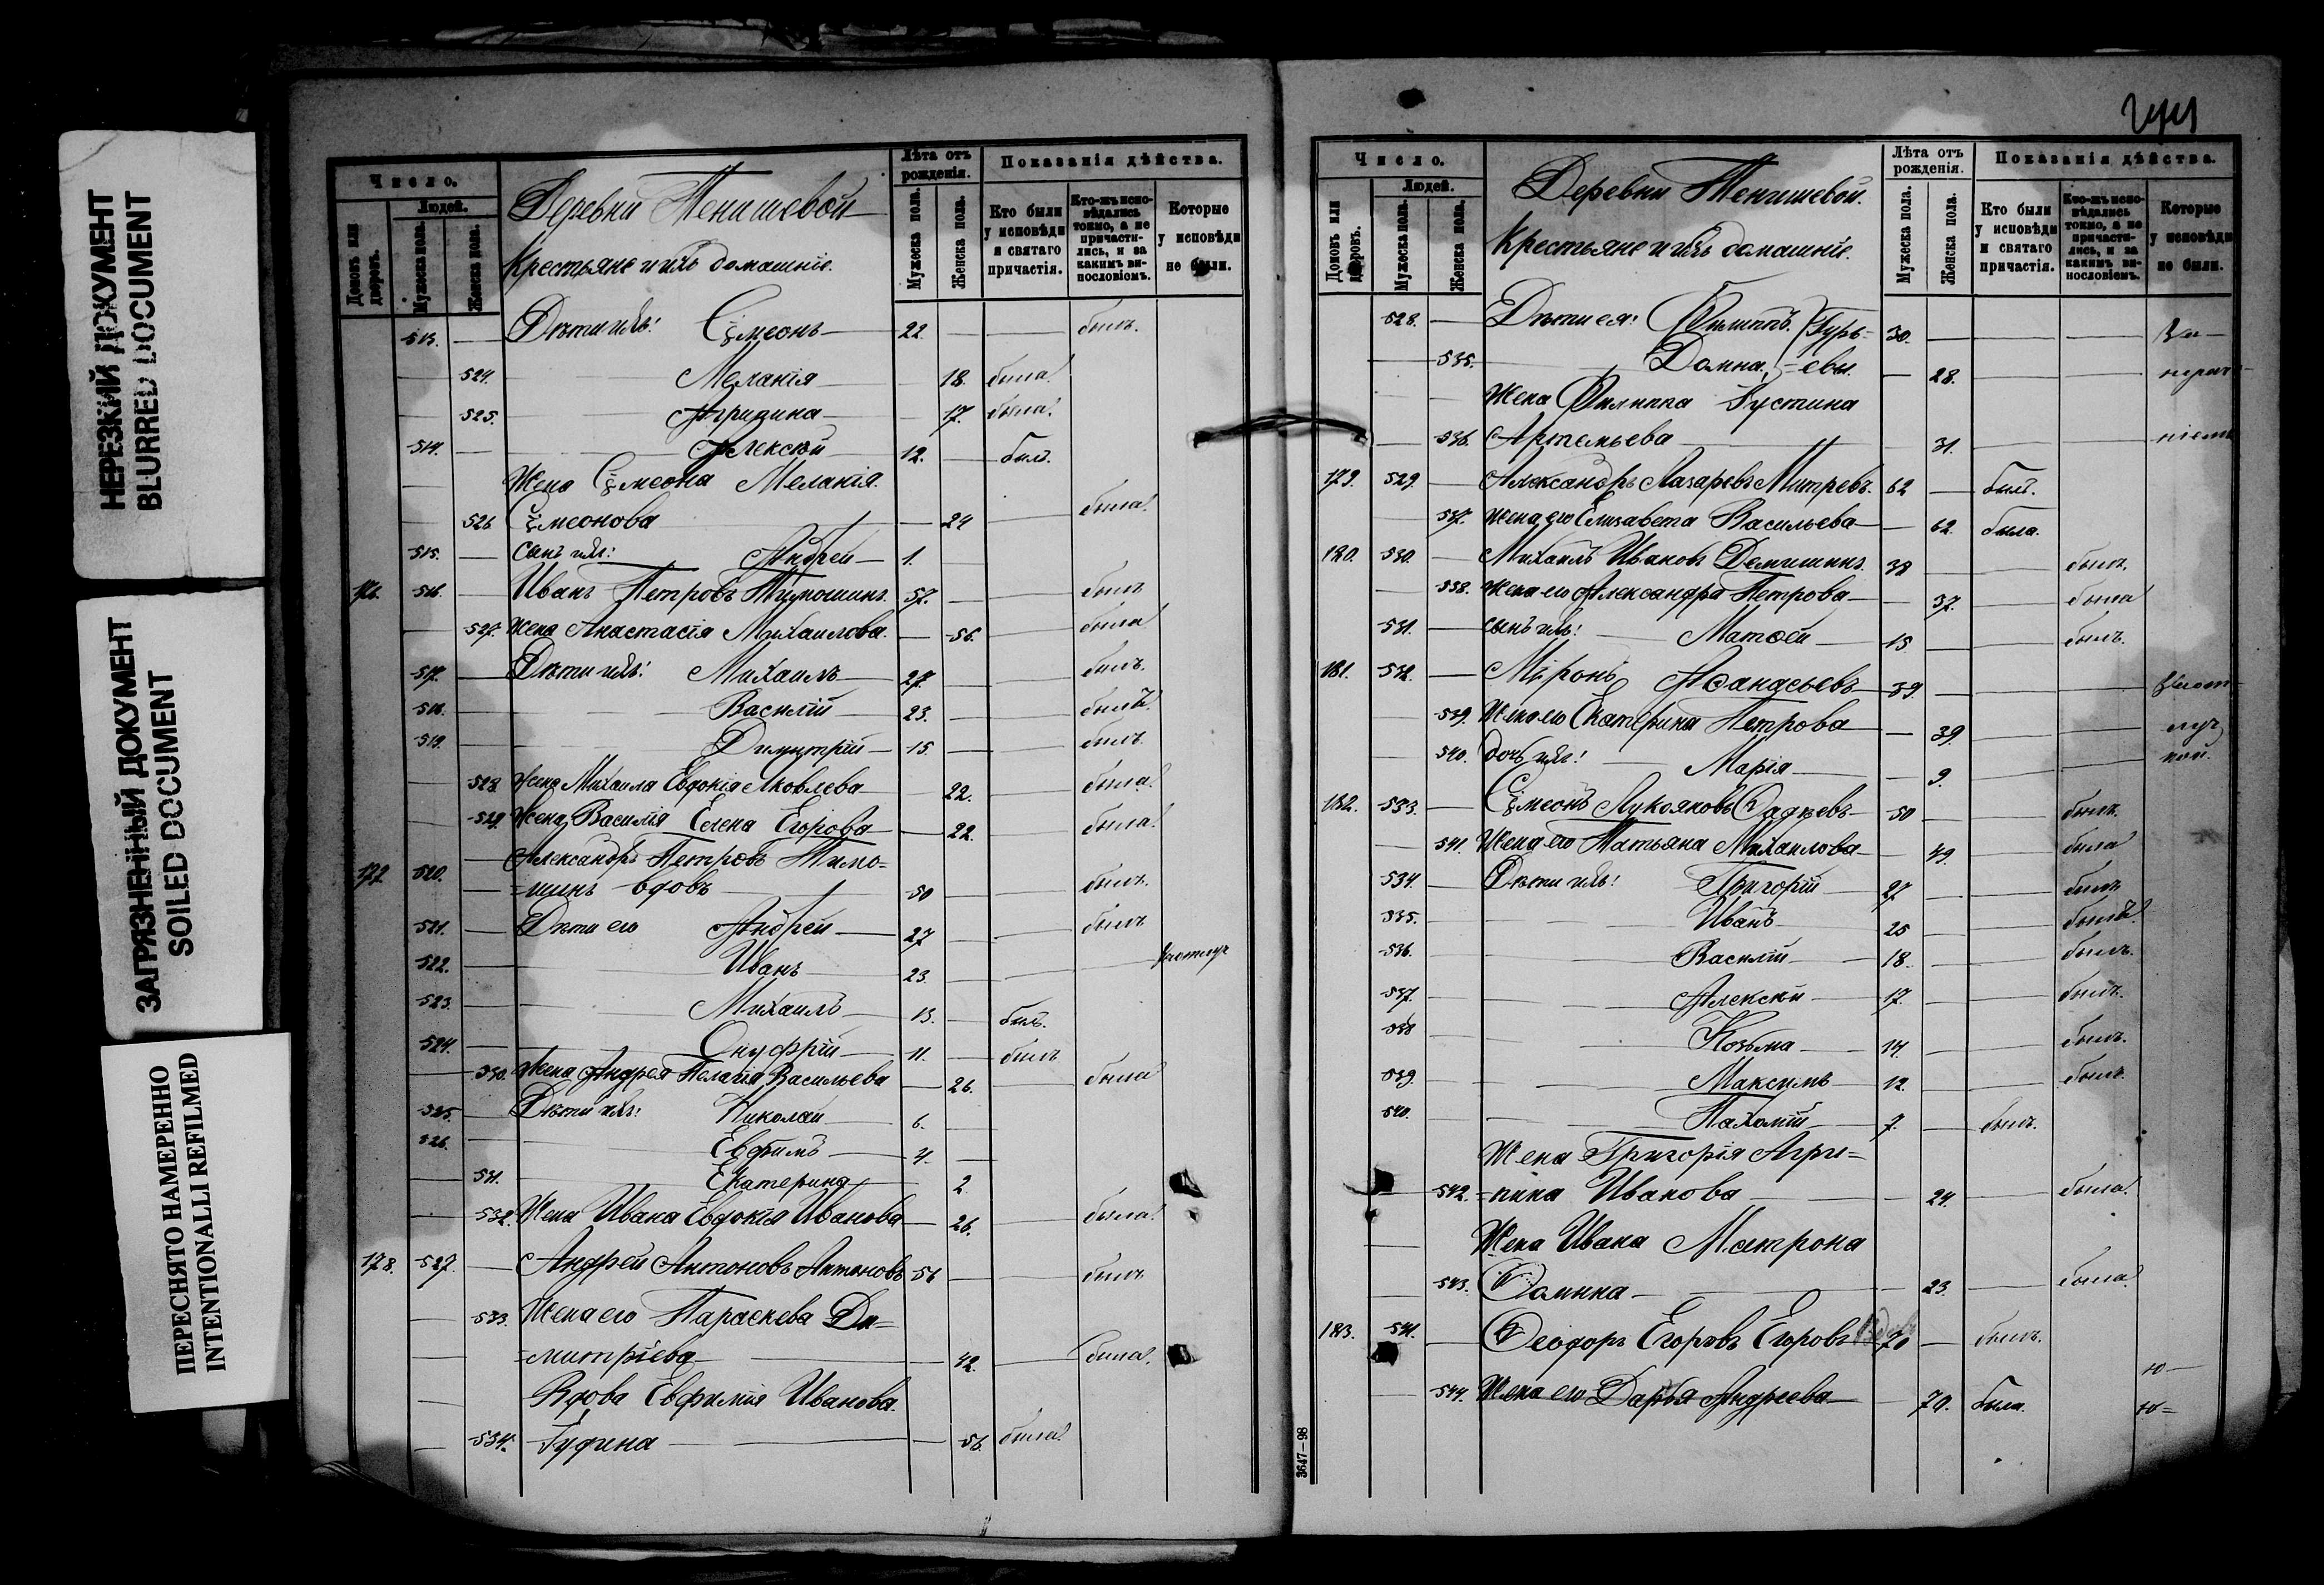 НЕРЕЗКИЙ ДОКУМЕНТ
BLURRED DOCUMENT
ЗАГРЯЗНЕННЫЙ ДОКУМЕНТ
SOILED DOCUMENT
ПЕРЕСНЯТО НАМЕРЕННО
INTENTIONALLI REFILMED
Число. Лѣта отъ рожденія. Показанія дѣйства.
Домовъ или дворовъ. Людей. Мужеска пола. Женска пола. Мужеска пола. Женска пола. Кто были у исповѣди и святаго причастія. Кто-жъ исповѣдались токмо, а не причастились, и за какимъ винословіемъ. Которые у исповѣди не были.
Деревни Тенишевой
Крестьяне и ихъ домашніе.
513. Дѣти ихъ: Сѵмеонъ 22. былъ.
524. Меланія 18. была.
525. 17. была.
514. Алексѣй 12. былъ.
Жена Сѵмеона Меланія
526. Сѵмеонова 24 была
515. сынъ ихъ: Андрей 1.
176. 516. Иванъ Петровъ Тимошинъ. 57. былъ
527. Жена Анастасія Михаилова. 56. была
517. Дѣти ихъ: Михаилъ 27. былъ.
518. Василій 23. былъ.
519. Димитрій 15. былъ.
528. Жена Михаила Евдокія Яковлева 22. была.
529. Жена Василія Елена Егорова 22. была.
Александръ Петровъ Тимо=
177 520. =шинъ вдовъ 50 былъ.
521. Дѣти его Андрей 27 былъ
522. Иванъ 23.
523. Михаилъ 13. былъ.
524. Онуфрій 11. былъ
530. Жена Андрея Пелагія Васильева 26. была
525. Дѣти ихъ: Николай 6.
526. Евфимъ 4.
531. Екатерина 2
532. Жена Ивана Евдокія Иванова 26. была.
178. 527. Андрей Антоновъ Антоновъ 56 былъ
533. Жена его Параскева Ди=
=митріева 42. была.
Вдова Евфимія Иванова
534. Гудина 56. была.
Число. Лѣта отъ рожденія. Показанія дѣйства.
Домовъ или дворовъ. Людей. Мужеска пола. Женска пола. Мужеска пола. Женска пола. Кто были у исповѣди и святаго причастія. Кто-жъ исповѣдались токмо, а не причастились, и за какимъ винословіемъ. Которые у исповѣди не были.
Деревни Тенишевой.
Крестьяне и ихъ домашніе.
528. Дѣти ея: Филиппъ. Гурь= 30. За
535. Домна. =евы. 28.
Жена Филиппа Іустина
536. Артемьева 31.
179. 529. Александръ Лазаревъ Митревъ. 62 былъ.
537. Жена его Елизавета Васильева 62. была.
180. 530. Михаилъ Ивановъ Демишинъ. 38 былъ.
538. Жена его Александра Петрова 37. была
531. сынъ ихъ: Матѳей 15 былъ.
181. 532. Мѵронъ Аѳанасьевъ 39.
539. Жена его Екатерина Петрова 39.
540. дочь ихъ: Марія 9.
182. 533. Сѵмеонъ Лукояновъ Ѳадѣевъ 50 былъ.
541 Жена его Татьяна Михаилова 49. была
534. Дѣти ихъ: Григорій 27 былъ
535. Иванъ 25 былъ.
536. Василій 18. былъ.
537. Алексѣй 17. былъ.
538 Козьма 14. былъ.
539. Максимъ 12. былъ.
540. Пахомій 7. былъ.
Жена Григорія Агри=
542. =пина Иванова 24. была.
Жена Ивана Матрона
543. Ѳомина 23. была.
183. 541. Ѳеодоръ Егоровъ Егоровъ 70 былъ.
544. Жена его Дарья Андреева 70. была.
3647—98